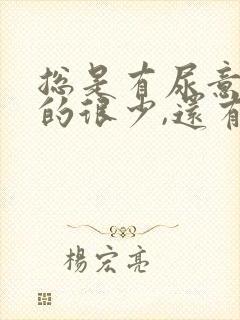 總是有尿意
的很少,還有
楊宏亮